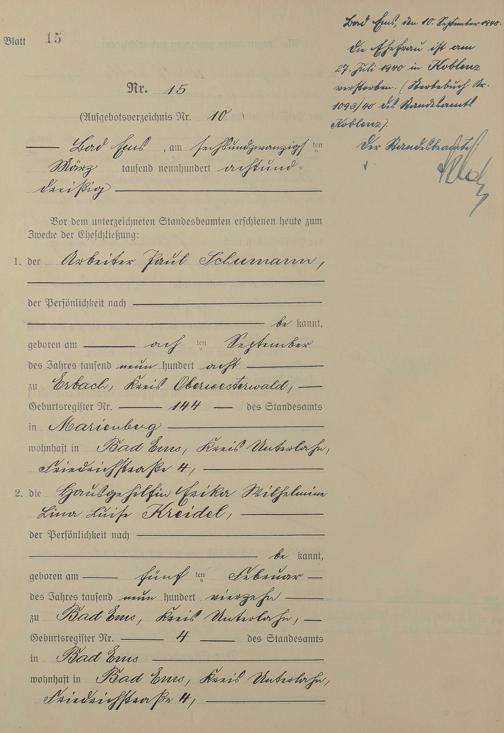 Blatt 15
Bad Ems, den 10. September 1940.
Die Ehefrau ist am
27. Juli 1940 in Koblenz
verstorben. (Sterbebuch Nr.
1093/40 des Standesamts
Koblenz)
Der Standesbeamte
Nr. 15
(Aufgebotsverzeichnis Nr. 10)
Bad Ems, am sechsundzwanzigsten
März tausend neunhundert achtund-
dreißig
Vor dem unterzeichneten Standesbeamten erschienen heute zum
Zwecke der Eheschließung:
1. der Arbeiter Paul Schumann,
der Persönlichkeit nach
be kannt,
geboren am ach ten September
des Jahres tausend neun hundert acht
zu Erbach, Kreis Oberwesterwald,
Geburtsregister Nr. 144 des Standesamts
in Marienberg
wohnhaft in Bad Ems, Kreis Unterlahn,
Friedrichstraße 4,
2. die Hausgehilfin Erika Wilhelmine
Lina Luise Kreidel,
der Persönlichkeit nach
be kannt,
geboren am fünf ten Februar
des Jahres tausend neun hundert vierzehn
zu Bad Ems, Kreis Unterlahn,
Geburtsregister Nr. 4 des Standesamts
in Bad Ems
wohnhaft in Bad Ems, Kreis Unterlahn,
Friedrichstraße 4,